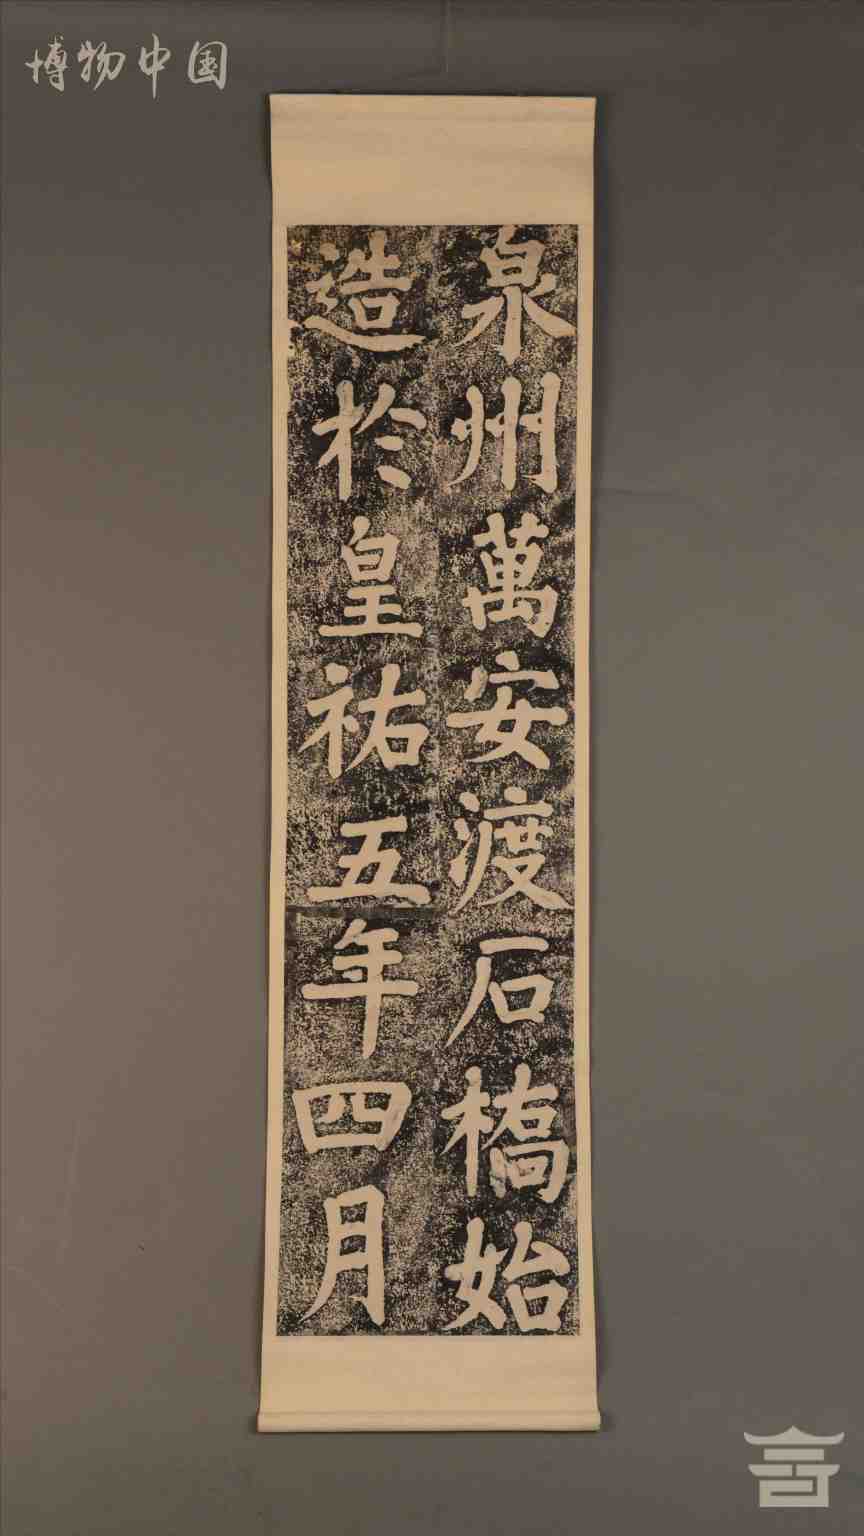 博物中国
泉州萬安渡石橋始
造於皇祐五年四月